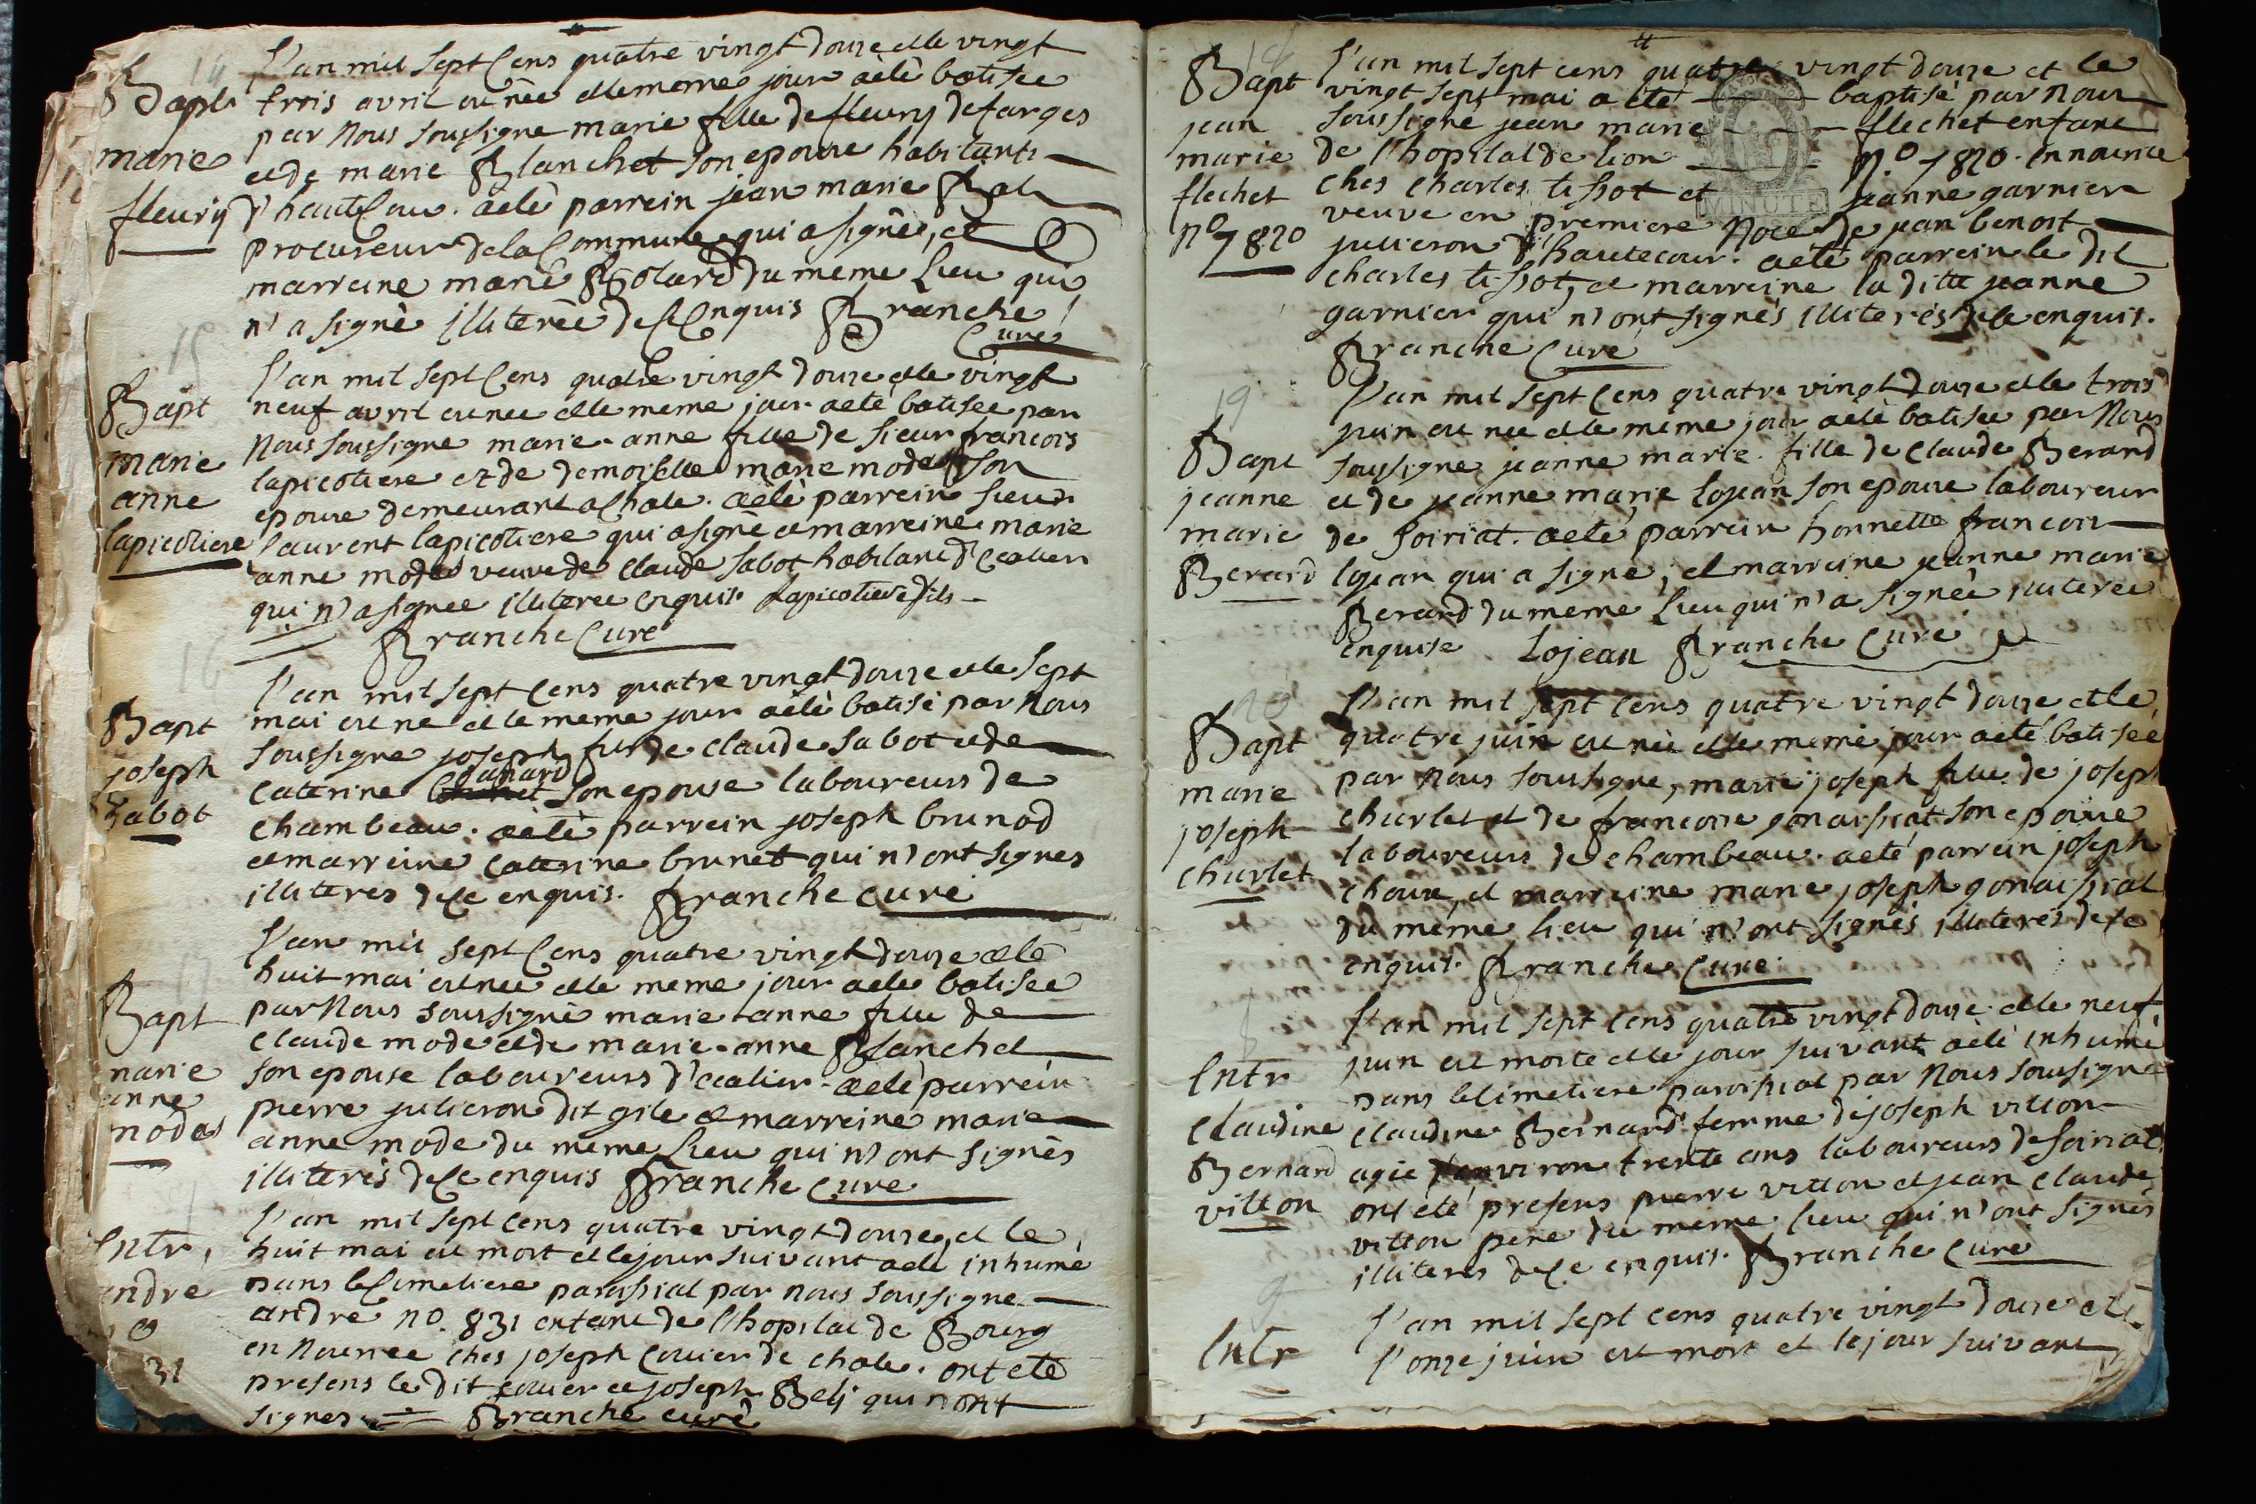 14
Bapt
marie
fleury
L'an mil sept Cens quatre vingt douze et le vingt
trois avril est née et le meme jour a èté batisée
par Nous soussigné marie fille de fleury defarges
et de marie Blanchet son epouse habitants
d'hauteCour. a eté parrein jean marie
procureur de la Commune qui a signé, et
marreine marie du meme Lieu qui
n'a signé illiterée de Ce Enquis Branche
Curé
15
Bapt
marie
anne
lapicotiere
L'an mil sept Cens quatre vingt douze et le vingt
neuf avril est née et le meme jour a eté batisée par
Nous soussigné marie-anne fille de sieur francois
lapicotiere et de demoiselle marie modas son
epouse demeurant a Chale. a èté parrein sieur
laurent lapicotiere qui a signé et marreine marie
anne modas veuve de Claude sabot habitant d'
qui n'a signée illiterée enquis. Lapicotiere fils
Branche Curé
16
Bapt
joseph
Sabot
L'an mil sept Cens quatre vingt douze et le sept
mai est né et le meme jour a èté batisé par Nous
soussigné joseph fils de claude sabot et de
Caterine son epouse laboureurs de
Chambeau. a èté parrein joseph brunod
et marreine Caterine brunet qui n'ont signés
illiterés de Ce enquis. Branche Curé
17
Bapt
marie
anne
modas
L'an mil sept Cens quatre vingt douze et le
huit mai est née et le meme jour a eté batisée
par Nous soussigné marie-anne fille de
Claude modas et de marie-anne Blanchet
son epouse laboureurs d' a eté parrein
pierre julieron dit gile et marreine marie
anne modas du meme Lieu qui n'ont signés
illiterés de Ce enquis Branche Curé
Entr
andré
31
L'an mil sept Cens quatre vingt douze, et le
huit mai est mort et le jour suivant a eté inhumé
dans le Cimetiere paroissial par nous soussigné
andré no. 831 enfant de l'hopital de Bourg
en Nourrice ches joseph Couier de chale. ont eté
presens le dit Couier et joseph Beli qui n'ont
signés Branche curé
18
Bapt
jean
marie
flechet
no
7820
MINUTE
L'an mil sept cens quatre vingt douze et le
vingt sept mai a eté baptisé par Nous
soussigné jean marie flechet enfant
de l'hopital de lion no 7820. en nourice
ches Charles tissot et jeanne garnier
veuve en premiere Noce de jean benoit
julieron d'hautecour. a eté parrein le dit
Charles tissot, et marreine la ditte jeanne
garnier qui n'ont signés illiterés de Ce enquis.
Branche Curé
19
Bapt
jeanne
marie
Berard
L'an mil sept Cens quatre vingt douze et le trois
juin est née et le meme jour a eté batisée par Nous
soussigné jeanne marie fille de Claude Berard
et de jeanne marie lojean son epouse laboureur
de soiriat. a eté parrein honnette francois
lojean qui a signé, et marreine jeanne marie
Berard du meme Lieu qui n'a signée illiterée
enquise Lojean Branche Curé
20
Bapt
marie
joseph
Charlet
L'an mil sept Cens quatre vingt douze et le
quatre juin est née et le meme jour a eté batisée
par Nous soussigné, marie joseph fille de joseph
Charlet et de francoise gonaissiat son epouse
laboureurs de chambeau. a eté parrein joseph
et marreine marie joseph gonaissiat
du meme lieu qui n'ont signés illiterés de Ce
enquis. Branche Curé
Entr
Claudine
Bernard
vitton
L'an mil sept Cens quatre vingt douze et le neuf
juin est morte et le jour suivant a èté inhumé
dans le Cimetiere paroissial par Nous soussigné
Claudine Bernard femme de joseph vitton
agée d'environ trente ans laboureurs de soiriat
ont eté presens pierre vitton et jean Claude
vitton pere du meme lieu qui n'ont signés
illiterés de Ce enquis. Branche Curé
Entr
L'an mil sept cens quatre vingt douze et
l'onze juin est mort et le jour suivant